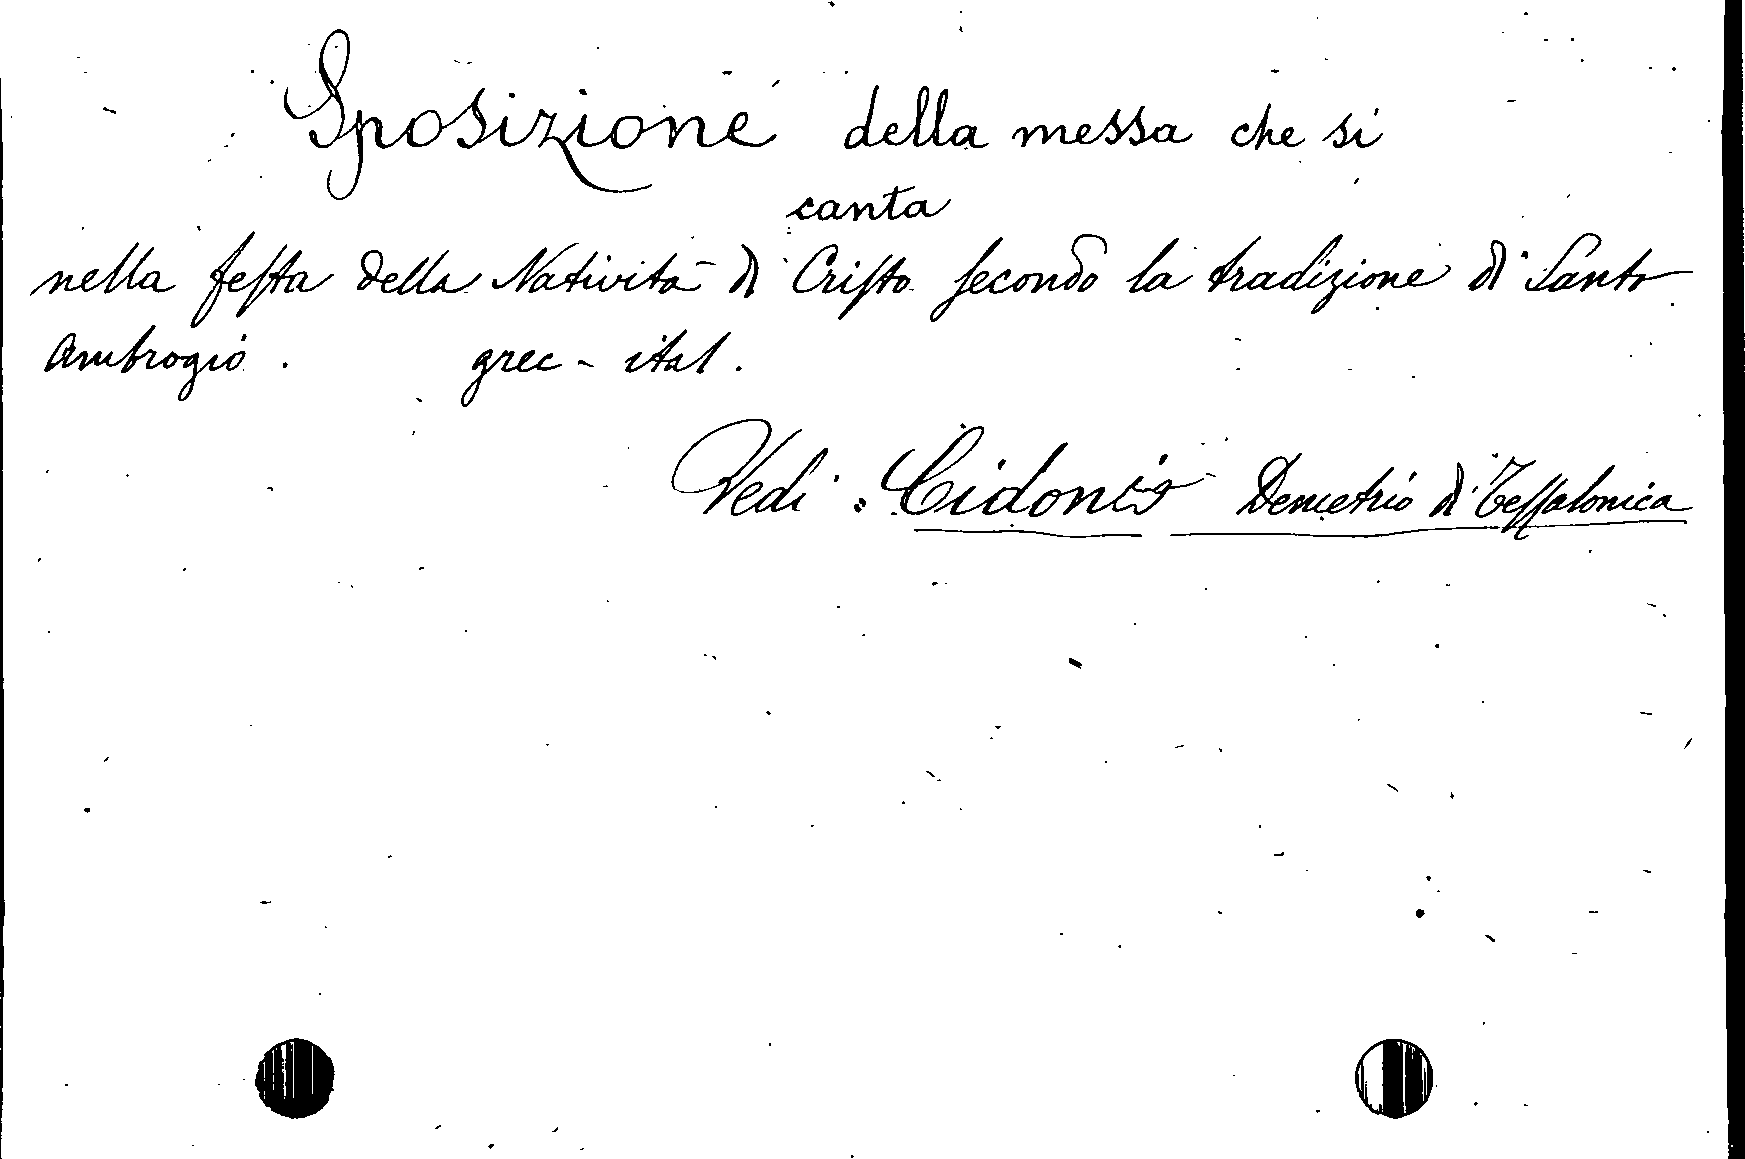 Sposizione della messa che si
canta
nella festa della Natività di Cristo secondo la tradizione di Santo
Ambrogio. grec - ital.
Vedi: Cidonio Demetrio di Tessalonica